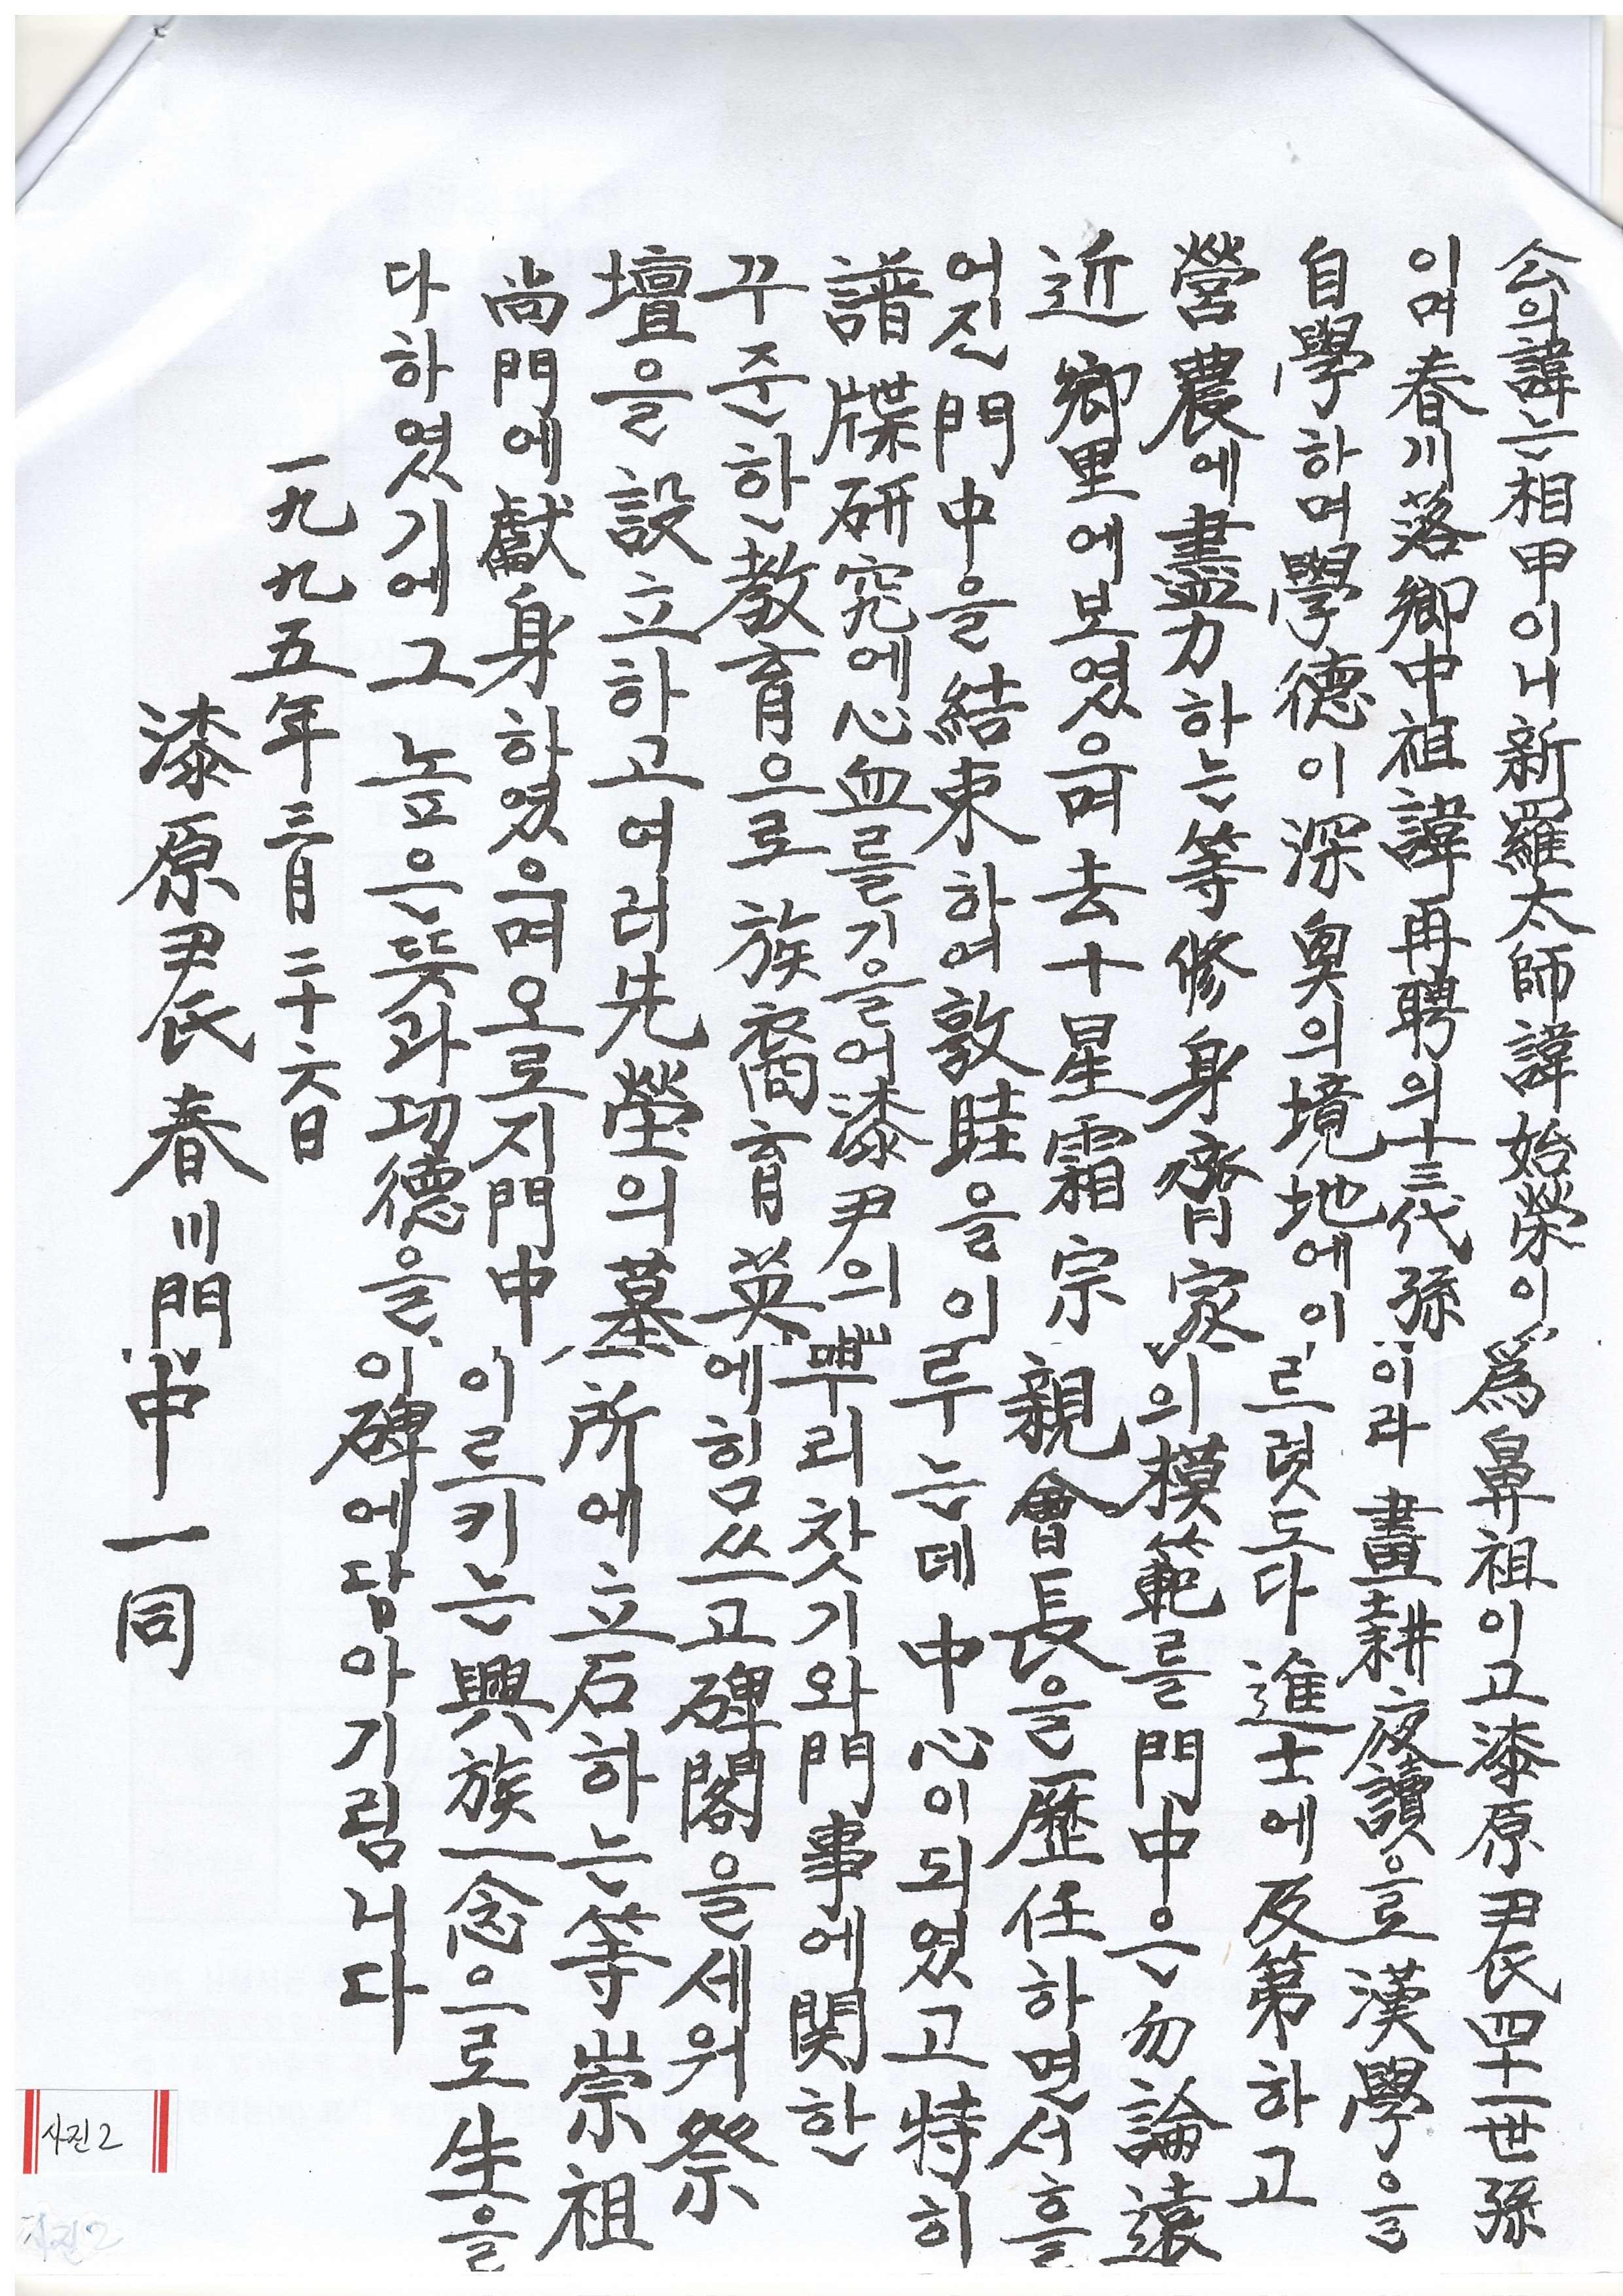 公의諱는相甲이니新羅太師諱始榮이爲鼻祖이고漆原尹氏四十一世孫
이며春川落鄕中祖諱再聘의十三代孫이라晝耕夜讀으로漢學을
自學하며學德이深奧의境地에이르렀도다進士에及第하고
營農에盡力하는等修身齊家의模範를門中은勿論遠
近鄕里에보였으며去十星霜宗親會長을歷任하면서흩
어진門中을結束하여敦睦을이루는데中心이되였고特히
譜牒硏究에心血를기울어漆尹의뿌리찾기와門事에関한
꾸준한教育으로族裔育英에힘쓰고碑閣을세워祭
壇을設立하고여러先塋의墓所에立石하는等崇祖
尚門에獻身하였으며오로지門中이르키는興族一念으로生을
다하였기에그높은뜻과功德을이碑에담아기림니다
一九九五年三月二十六日
漆原尹氏春川門中一同
사진2
사진2